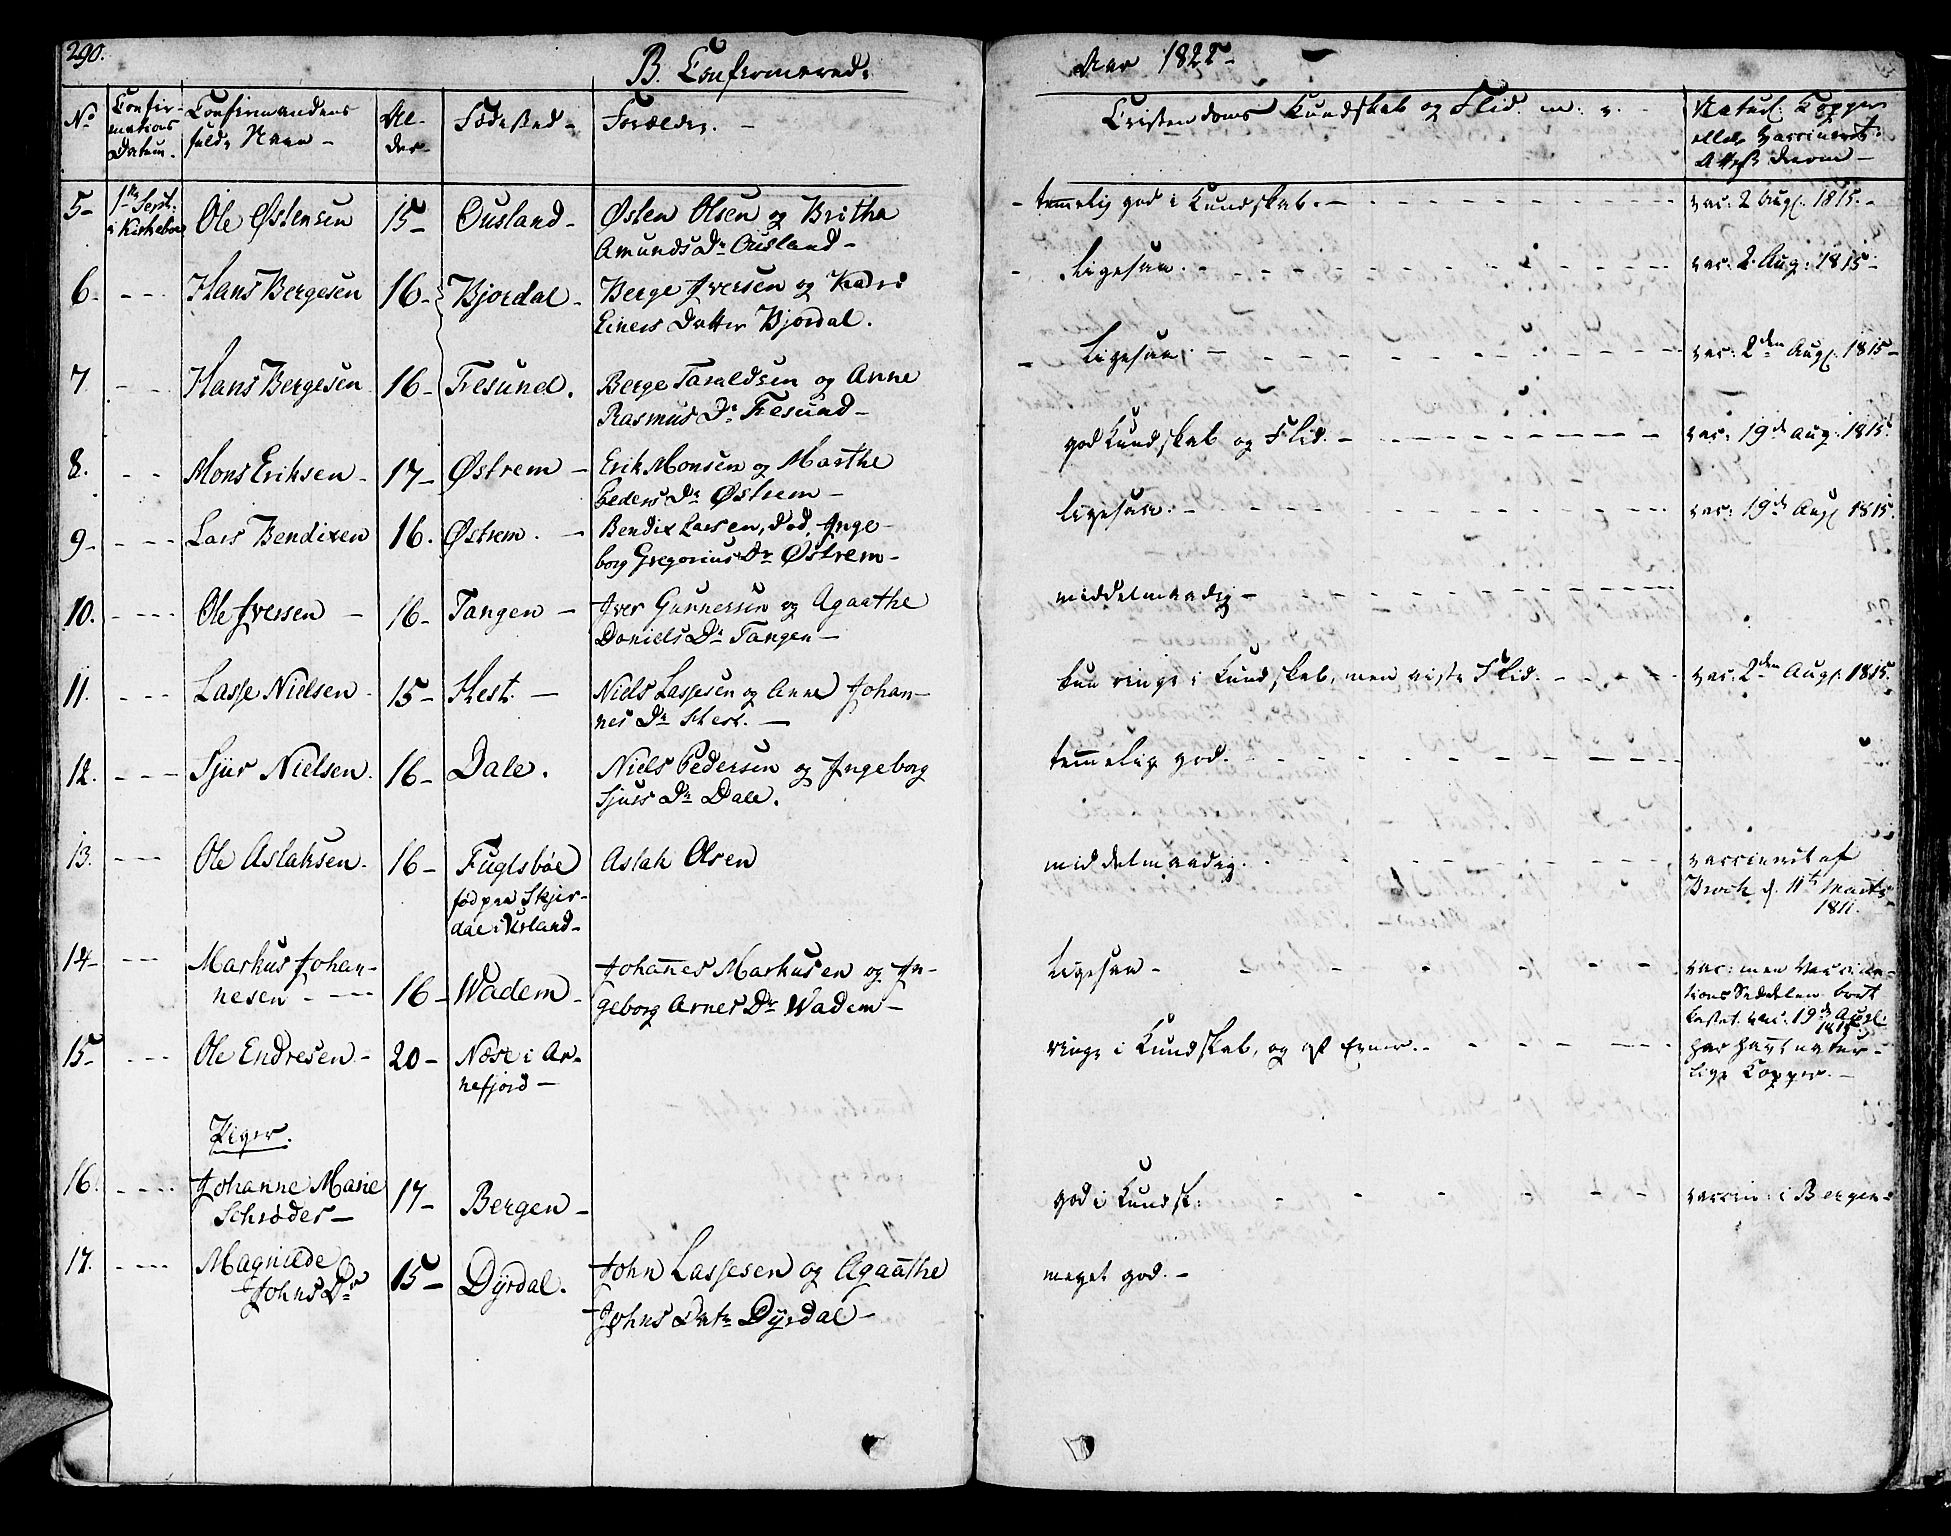 290.
B. Confirmerede
Aar 1822
No
Confir-
mations
Datum.
Confirmandens
fulde Navn -
Al-
der
Fødested -
Forældre. -
Cristendoms Kundskab og Flid m: v: -
Naturl. Kopper
eller Vaccineret
Attest derom -
5- 1te Sept. i Kirkeboe Ole Østensen 15- Ousland - Østen Olsen og Britha
Amunds Dr Ousland -
- temmelig god i Kundskab. - vac: 2 Aug. 1815. -
6. - - - Hans Bergesen 16- Bjordal - Berge Iversen og Kari
Einers Datter Bjordal.
- Ligesaa. - vac: 2. Aug: 1815 -
7. - - Hans Bergesen 16- Fesund. Berge Taraldsen og Anne
Rasmus Dr Fesund -
- Ligesaa: - vac: 2den Aug. 1815 -
8. - - Mons Eriksen - 17- Østrem - Erik Monsen og Marthe
Peders Dr Østrem -
god Kundskab og Flid. - vac: 19de Aug: 1815.
9- - - - Lars Bendixen 16. Østrem. - Bendix Larsen, død, Inge-
borg Gregorius Dr Østrem -
ligesaa. - vac: 19de Aug. 1815.
10. - - - Ole Iversen - 16- Tangen - Iver Gunnersen og Agaathe
Daniels Dr Tangen -
middelmaadig -
11. - - - Lasse Nielsen - 15- Hest. - Niels Lassesen og Anne Johan-
nes Dr Hest. -
kun ringe i Kundskab, men viste Flid. - vac: 2den Aug. 1815.
12. - - - Sjur Nielsen. 16- Dale. Niels Pedersen og Ingeborg
Sjurs Dr Dale.
temmelig god. -
13. - - - Ole Aslaksen. 16- Fuglsbøe Aslak Olsen
født paa Skjer-
dal i Urland -
middelmaadig. - vaccineret af
Broch d. 11te Marts
1811.
14- - - Markus Johan-
nesen - - - 16- Wadem - Johannes Markusen og In-
geborg Arnes Dr Wadem -
ligesaa - vac: men Vaccina-
tions Seddelen bort
kastet. vac: 19de Aug.
1815.
15- - - - Ole Endresen - 20- Næse i Ar-
nefjord -
ringe i Kundskab, og af Evner. - har havt natur-
lige Kopper. -
Piger.
16. - - - Johanne Marie
Schrøder - 17- Bergen -
god i Kundsk: - vaccin: i Bergen -
17. - - - Magnilde
Johns Dr 15- Dyrdal. John Lassesen og Agaathe
Johns Datr Dyrdal -
meget god. -